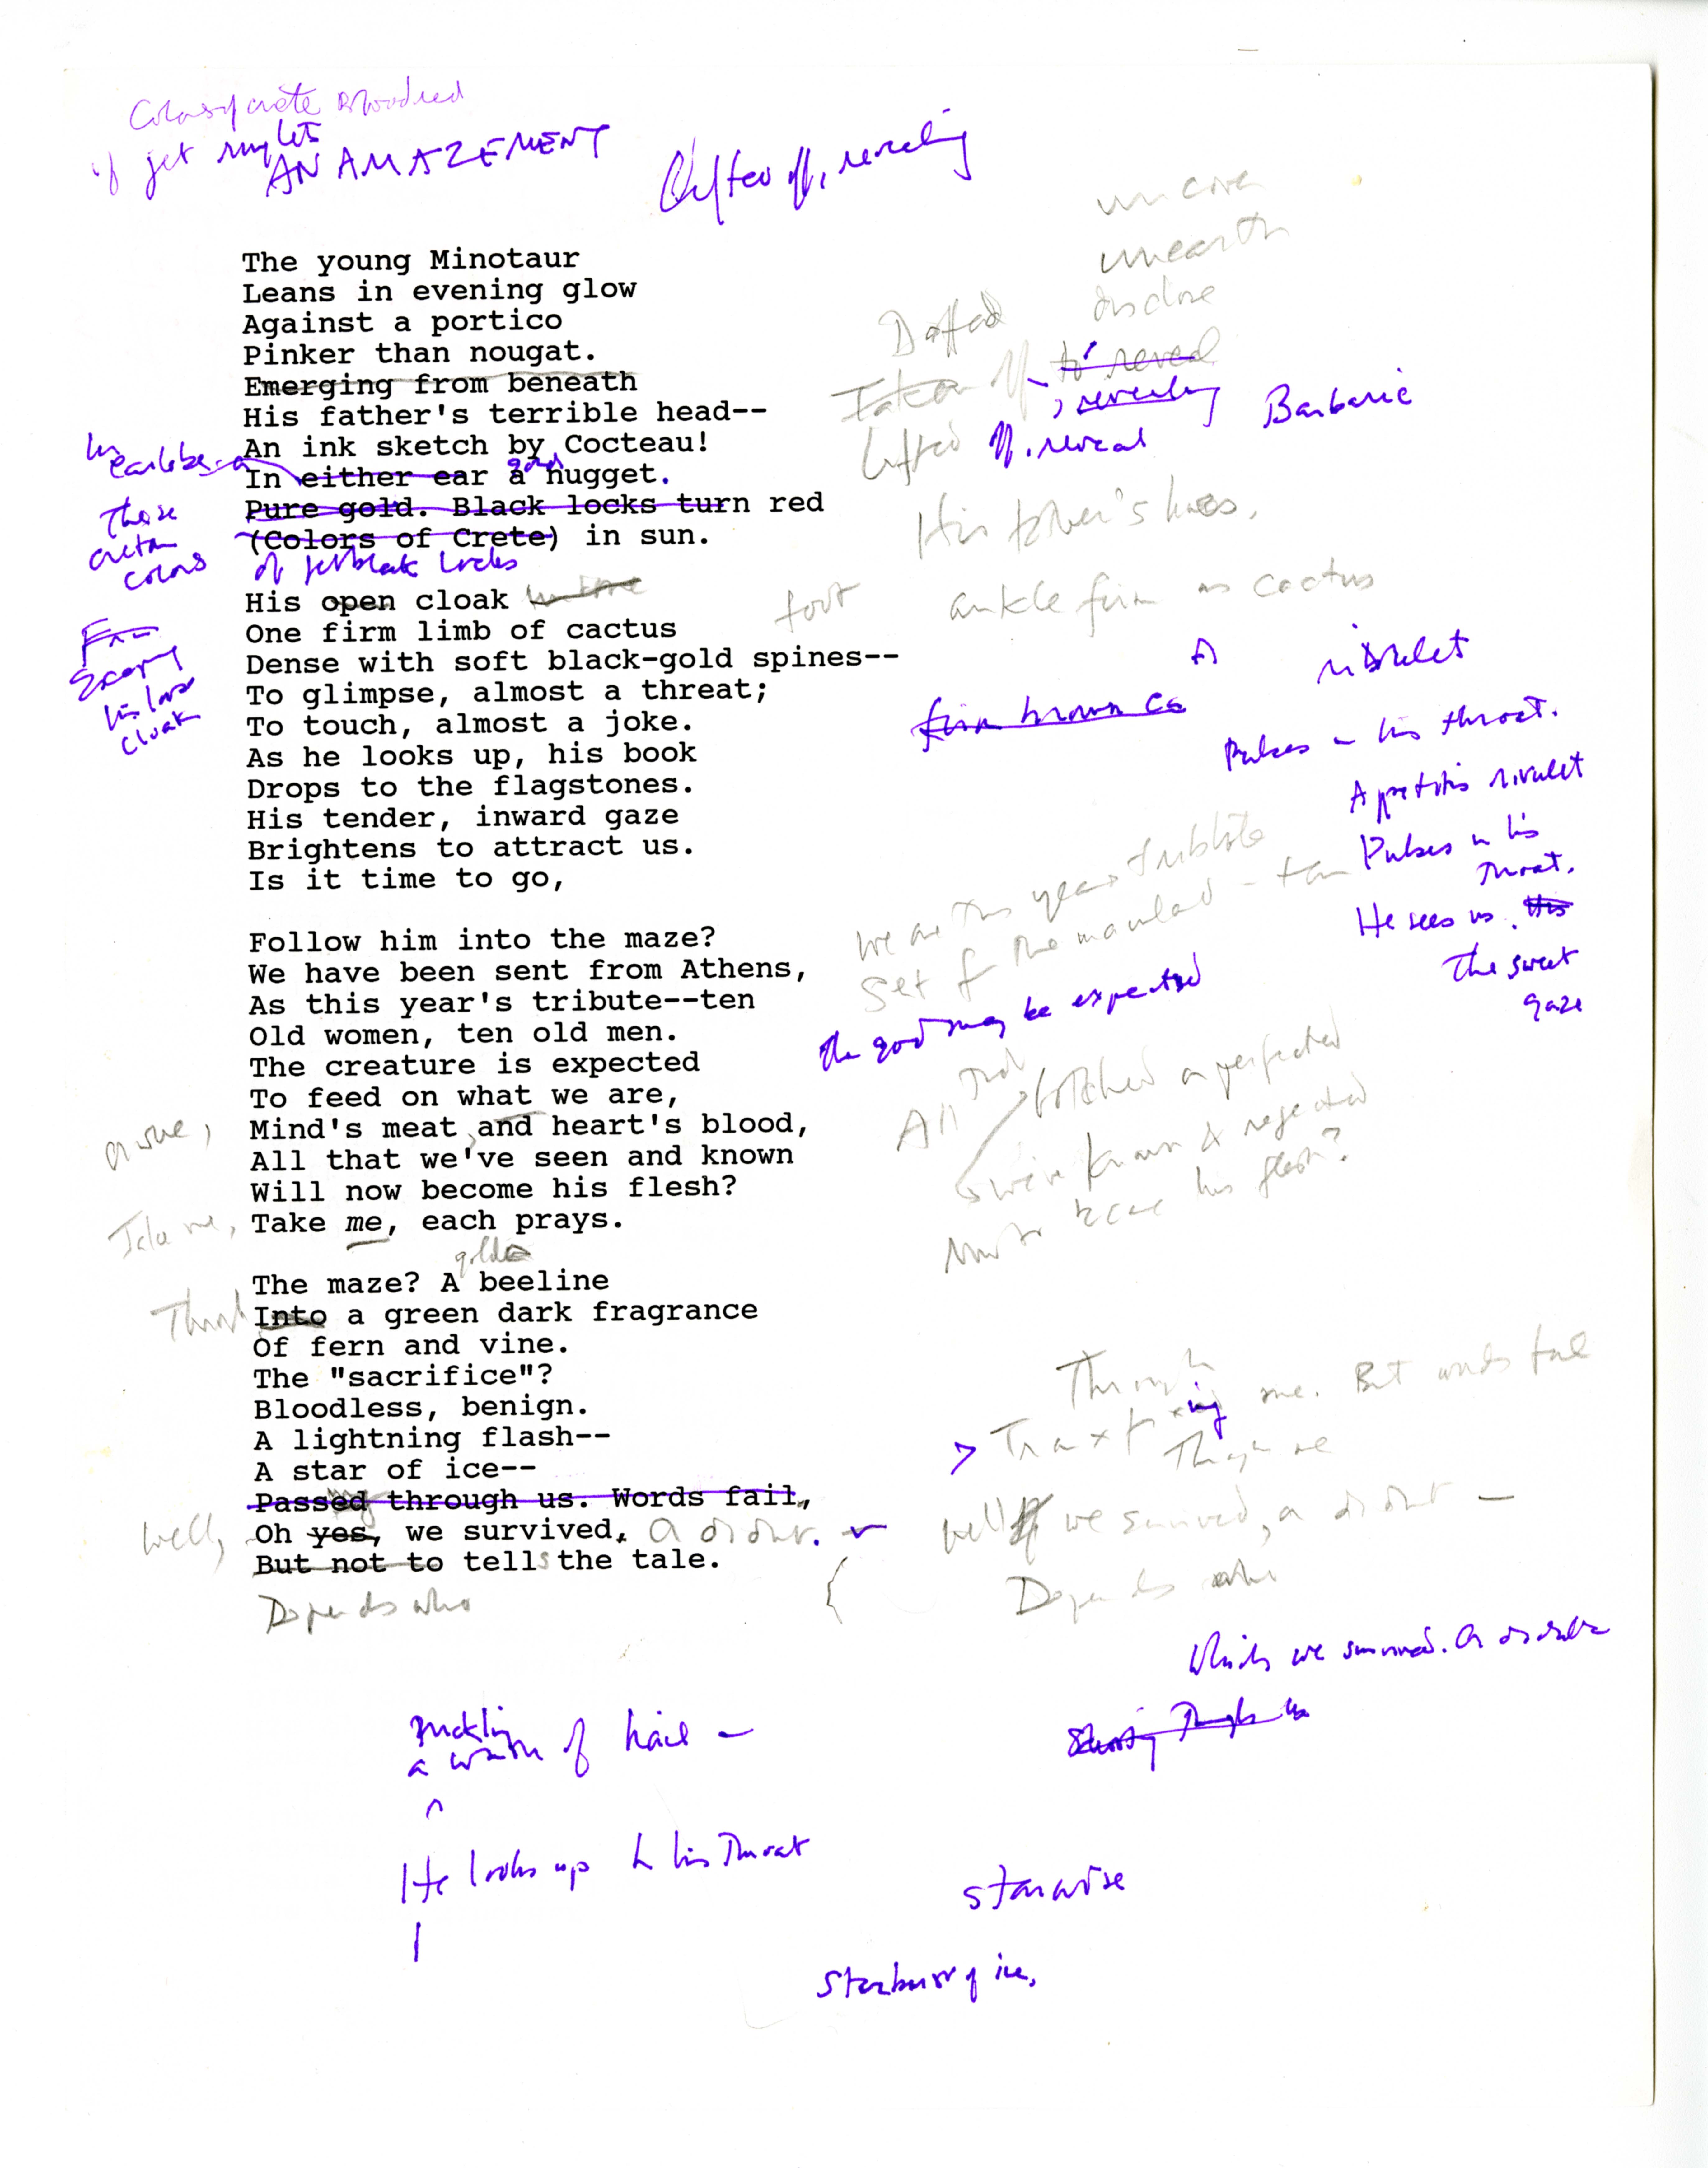 Colors of Crete Bloodred
of jet ringlets
AN AMAZEMENT
Lifted off, revealing
uncover
unearth
disclose
The young Minotaur
Leans in evening glow
Against a portico
Doffed
Pinker than nougat.
Taken off to reveal
Emerging from beneath
, revealing
Barbaric
His father's terrible head--
Lifted off, reveal
An ink sketch by Cocteau!
In earlobes a
In either ear a gold nugget.
These
Cretan
colors
Pure gold. Black locks turn red
(Colors of Crete) in sun.
of jetblack locks
His father's
His open cloak
foot
ankle firm as cactus
One firm limb of cactus
his
cloak
Dense with soft black-gold spines--
A rivulet
To glimpse, almost a threat;
firm brown ca
To touch, almost a joke.
Pulses in his throat.
As he looks up, his book
Drops to the flagstones.
A rivulet
His tender, inward gaze
Pulses in his
throat.
Brightens to attract us.
Is it time to go,
He sees us. His
The sweet
gaze
we are this year's tribute
Set for the - ten
Follow him into the maze?
We have been sent from Athens,
As this year's tribute--ten
the god may be expected
Old women, ten old men.
The creature is expected
To feed on what we are,
All that botched or perfected
Mind's meat, and heart's blood,
All that we've seen and known
we've known & rejected
Will now become his flesh?
his flesh?
Take me,
Take me, each prays.
The maze? A golden beeline
Into a green dark fragrance
Of fern and vine.
The "sacrifice"?
Through
me. But words fail
Bloodless, benign.
A lightning flash--
A star of ice--
Passed through us. Words fail,
Well,
Oh yes, we survived.
Well we survived, a
But not to tells the tale.
Depends who
Depends who
Which we survived.
through us
prickling
a of hail -
He looks up his throat
starwise
Starburst of ice,